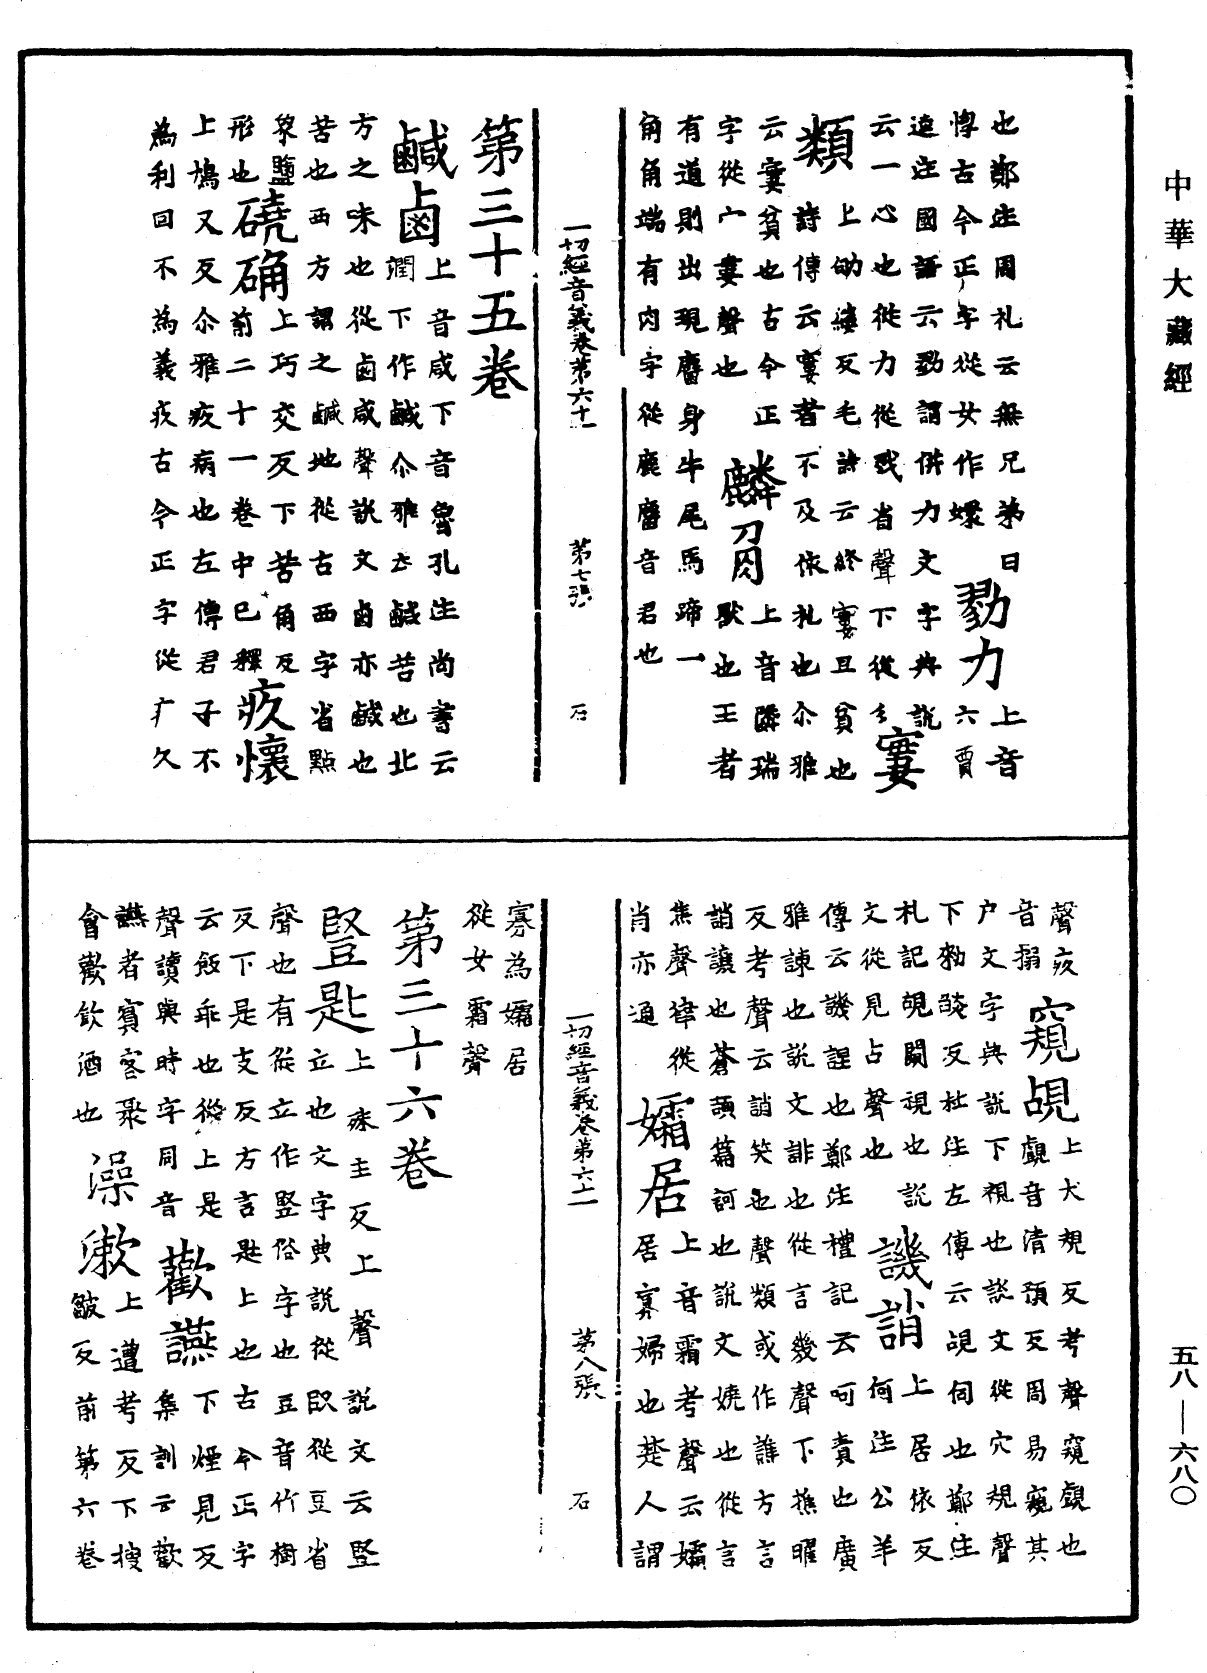 中華大藏經
也鄭注周礼云無兄弟曰
惸古今正字從女作嬛
勠力
上音
六賈
逵注國語云勠謂併力文字典說
云一心也從力從戮省聲下從
窶
類
上劬縷反毛詩云終窶且貧也
詩傳云窶者不及依礼也尒雅
云窶貧也古今正
字從宀婁聲也
麟㓹
上音隣瑞
獸也王者
有道則出現麕身牛尾馬蹄一
角角端有肉字從鹿麕音君也
一切經音義卷第六十二
第七張
石
第三十五卷
鹹鹵
上音咸下音魯孔注尚書云
潤下作鹹尒雅云鹹苦也北
方之味也從鹵咸聲說文鹵亦鹹也
苦也西方謂之鹹地從古西字省點
象鹽
形也
磽确
上巧交反下苦角反
前二十一卷中已釋
疚懷
上鳩又反尒雅疚病也左傳君子不
為利回不為義疚古今正字從疒久
聲疚
音搦
窺覘
上犬規反考聲窺覷也
覷音清預反周易窺其
户文字典說下視也說文從穴規聲
下勑豔反杜注左傳云覘伺也鄭注
礼記覘闚視也說
文從見占聲也
譏誚
上居依反
何注公羊
傳云譏誚也鄭注禮記云呵責也廣
雅諫也說文誹也從言幾聲下樵曜
反考聲云誚笑也聲類或作譙方言
誚讓也蒼頡篇訶也說文嬈也從言
焦聲律從
肖亦通
孀居
上音霜考聲云孀
居寡婦也楚人謂
一切經音義卷第六十二
第八張
石
寡為孀居
從女霜聲
第三十六卷
豎匙
上殊主反上聲說文云豎
立也文字典說從臤從豆省
聲也有從立作竪俗字也豆音竹樹
反下是支反方言匙上也古今正字
云飯乖也從上是
聲讀與時字同音
歡讌
下煙見反
集訓云歡
讌者賓客聚
會歡飲酒也
澡漱
上遭考反下搜
皺反前第六卷
五八—六八〇